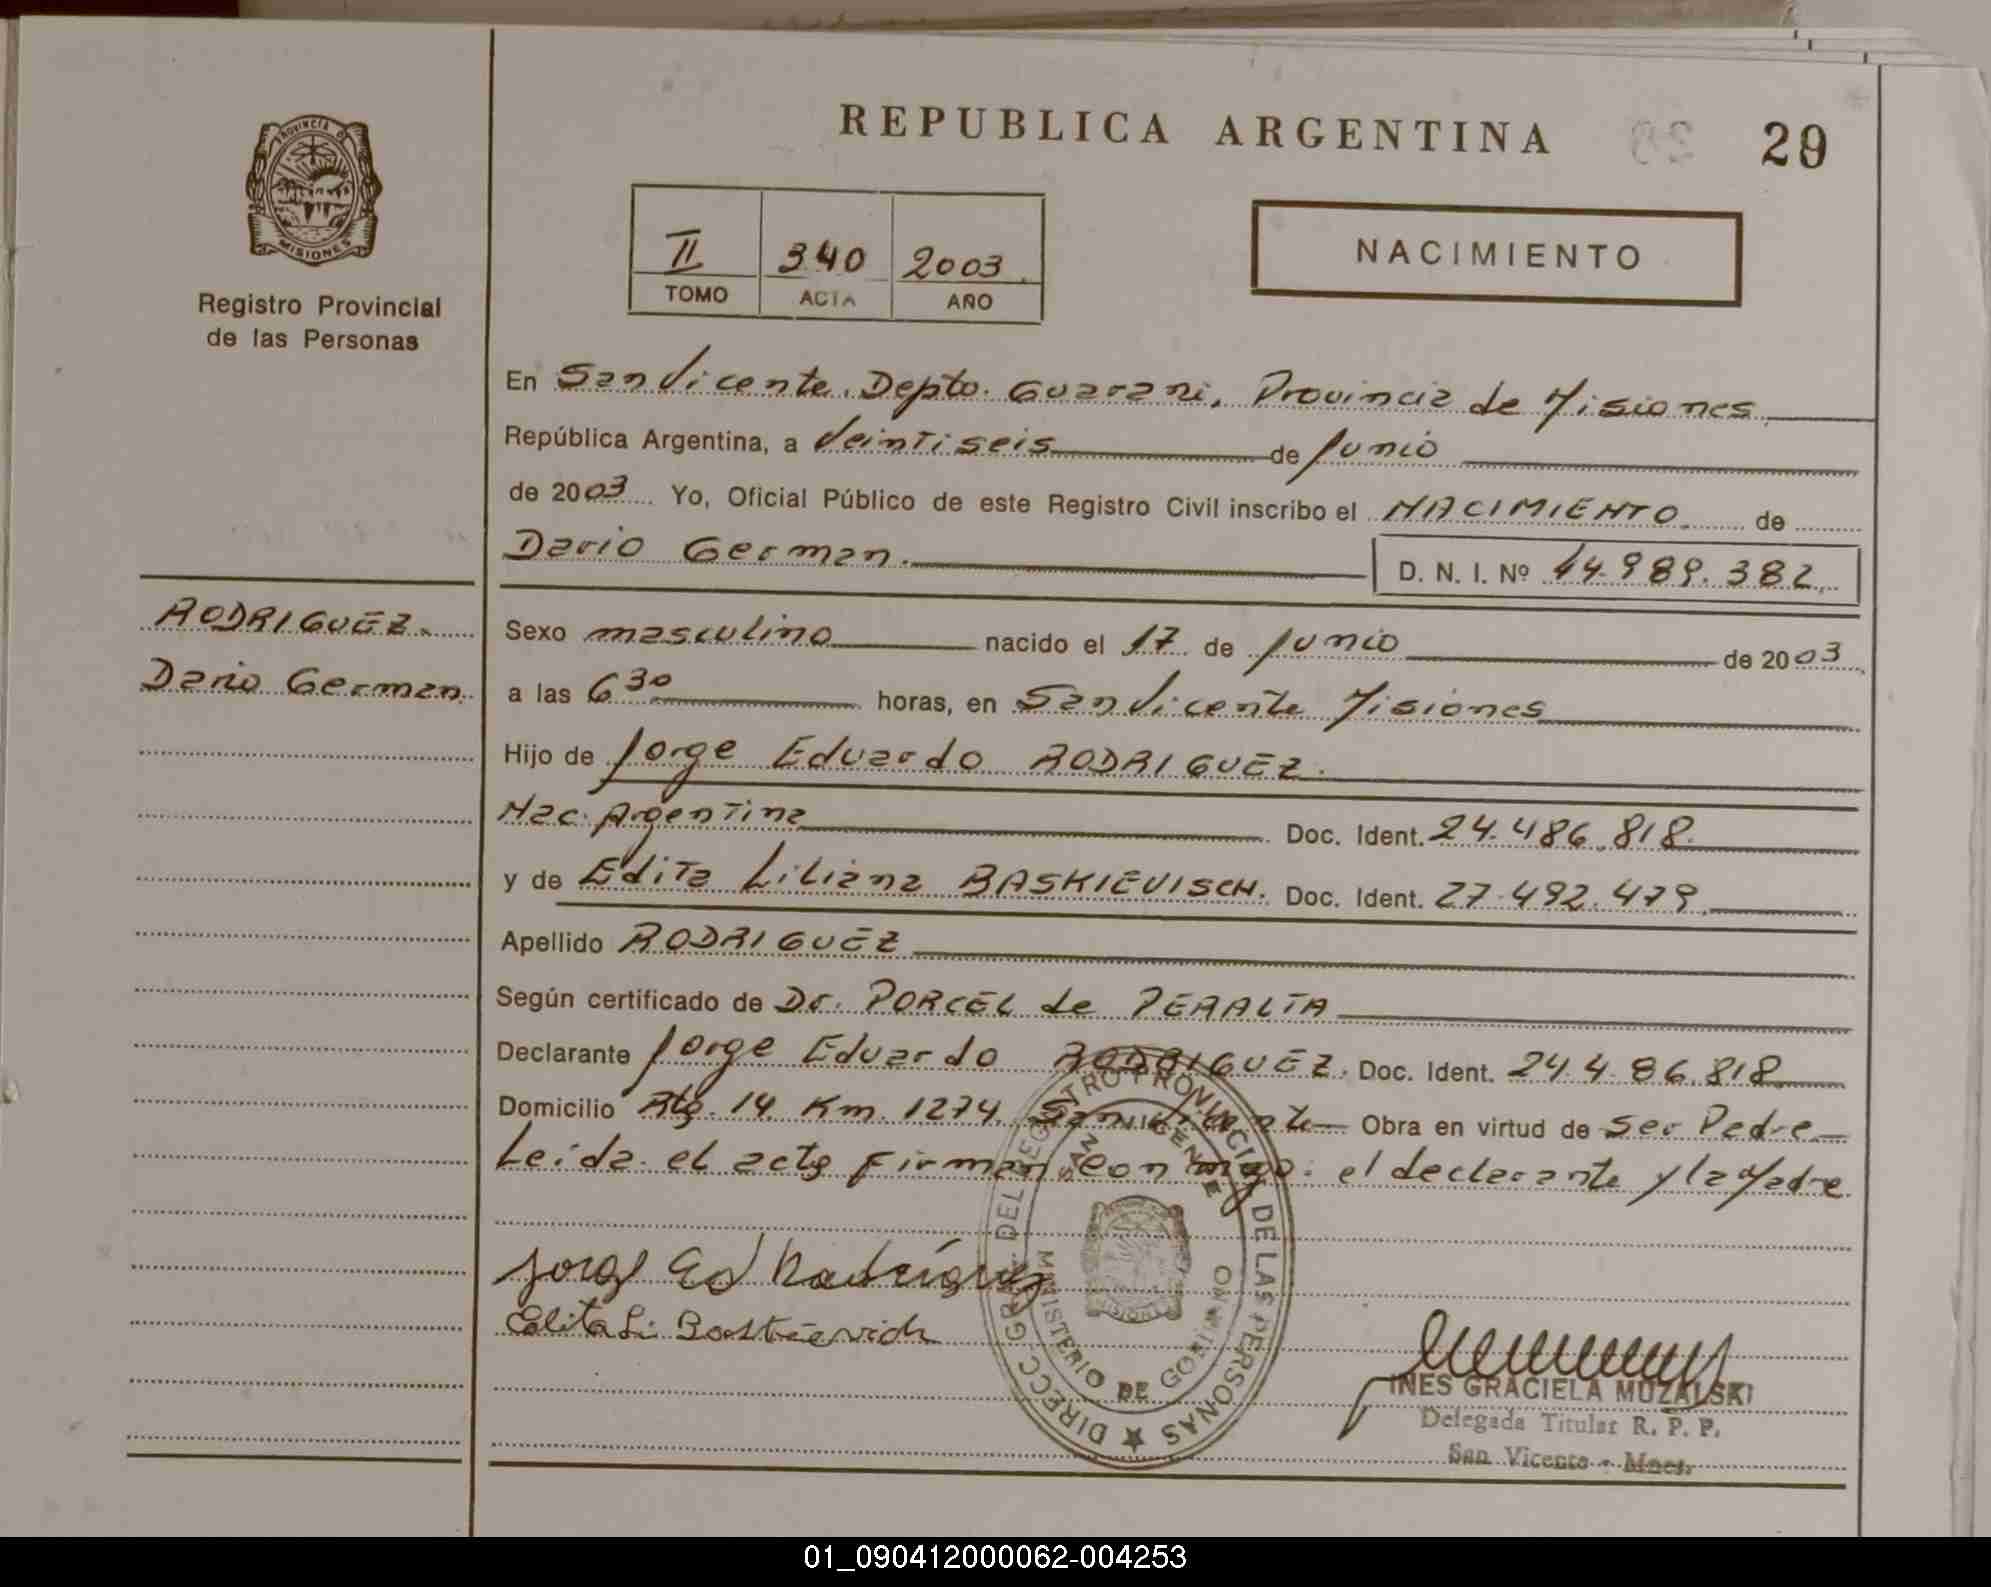 REPUBLICA ARGENTINA
29
PROVINCIA DE
MISIONES
Registro Provincial
de las Personas
II 340 2003
TOMO ACTA AÑO
NACIMIENTO
En San Vicente. Depto. Guarani, Provincia de Misiones
República Argentina, a Veintiseis de Junio
de 2003 Yo, Oficial Público de este Registro Civil inscribo el NACIMIENTO de
Dario German.
D. N. I. Nº 44.989.382
RODRIGUEZ.
Dario German.
Sexo masculino nacido el 17 de Junio de 2003
a las 6 30 horas, en San Vicente Misiones
Hijo de Jorge Eduardo RODRIGUEZ.
Nac. Argentina Doc. Ident. 24.486.818.
y de Edita Liliana BASKIEVISCH. Doc. Ident. 27.492.479
Apellido RODRIGUEZ
Según certificado de Dr. PORCEL de PERALTA
Declarante Jorge Eduardo RODRIGUEZ. Doc. Ident. 24.486.818
Domicilio Rta. 14 Km. 1274. San Vicente Obra en virtud de ser Padre
Leida el acta firman con migo: el declarante y la Madre
DIRECC. GRAL. DEL REGISTRO PROVINCIAL DE LAS PERSONAS
SAN VICENTE
MISIONES
MINISTERIO DE GOBIERNO
Jorge Ed Rodríguez
Edita Li
INES GRACIELA MUZALSKI
Delegada Titular R. P. P.
San Vicente - Mnes.
01_090412000062-004253